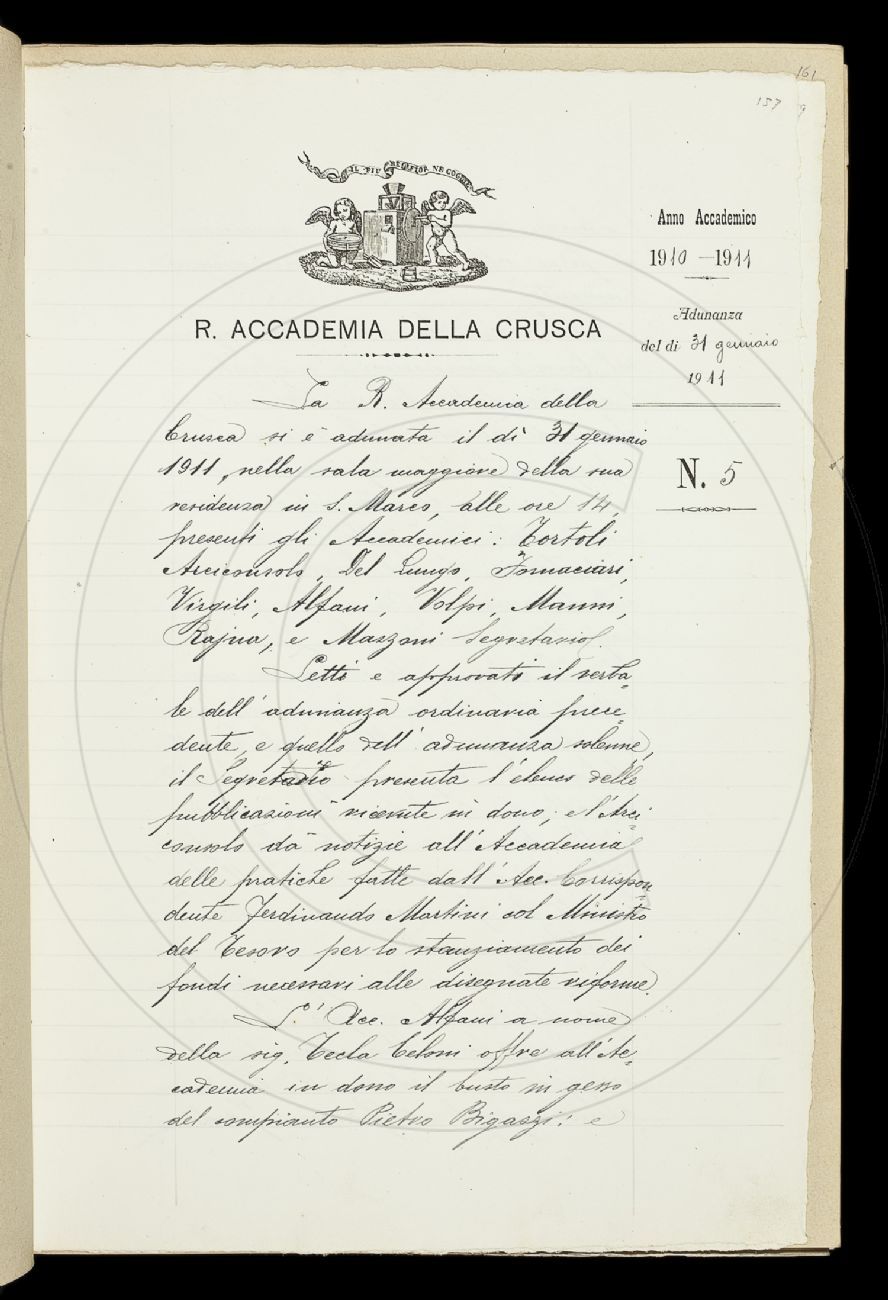 161
157
IL PIÙ BEL FIOR NE COGLIE
Anno Accademico
1910 - 1911
Adunanza
del dì 31 gennaio
1911
N. 5
R. ACCADEMIA DELLA CRUSCA
La R. Accademia della
Crusca si è adunata il dì 31 gennaio
1911, nella sala maggiore della sua
residenza in S. Marco, alle ore 14,
presenti gli Accademici: Tortoli
Arciconsolo, Del Lungo, Fornaciari,
Virgili, Alfani, Volpi, Manni,
Rajna, e Mazzoni Segretario.
Letti e approvati il verba-
le dell'adunanza ordinaria prece-
dente, e quello dell'adunanza solenne,
il Segretario presenta l'elenco delle
pubblicazioni ricevute in dono; e l'Arci-
consolo dà notizie all'Accademia
delle pratiche fatte dall'Acc. Corrispon-
dente Ferdinando Martini col Ministro
del Tesoro per lo stanziamento dei
fondi necessari alle disegnate riforme.
L'Acc. Alfani a nome
della sig. Tecla Celoni offre all'Ac-
cademia in dono il busto in gesso
del compianto Pietro Bigazzi: e